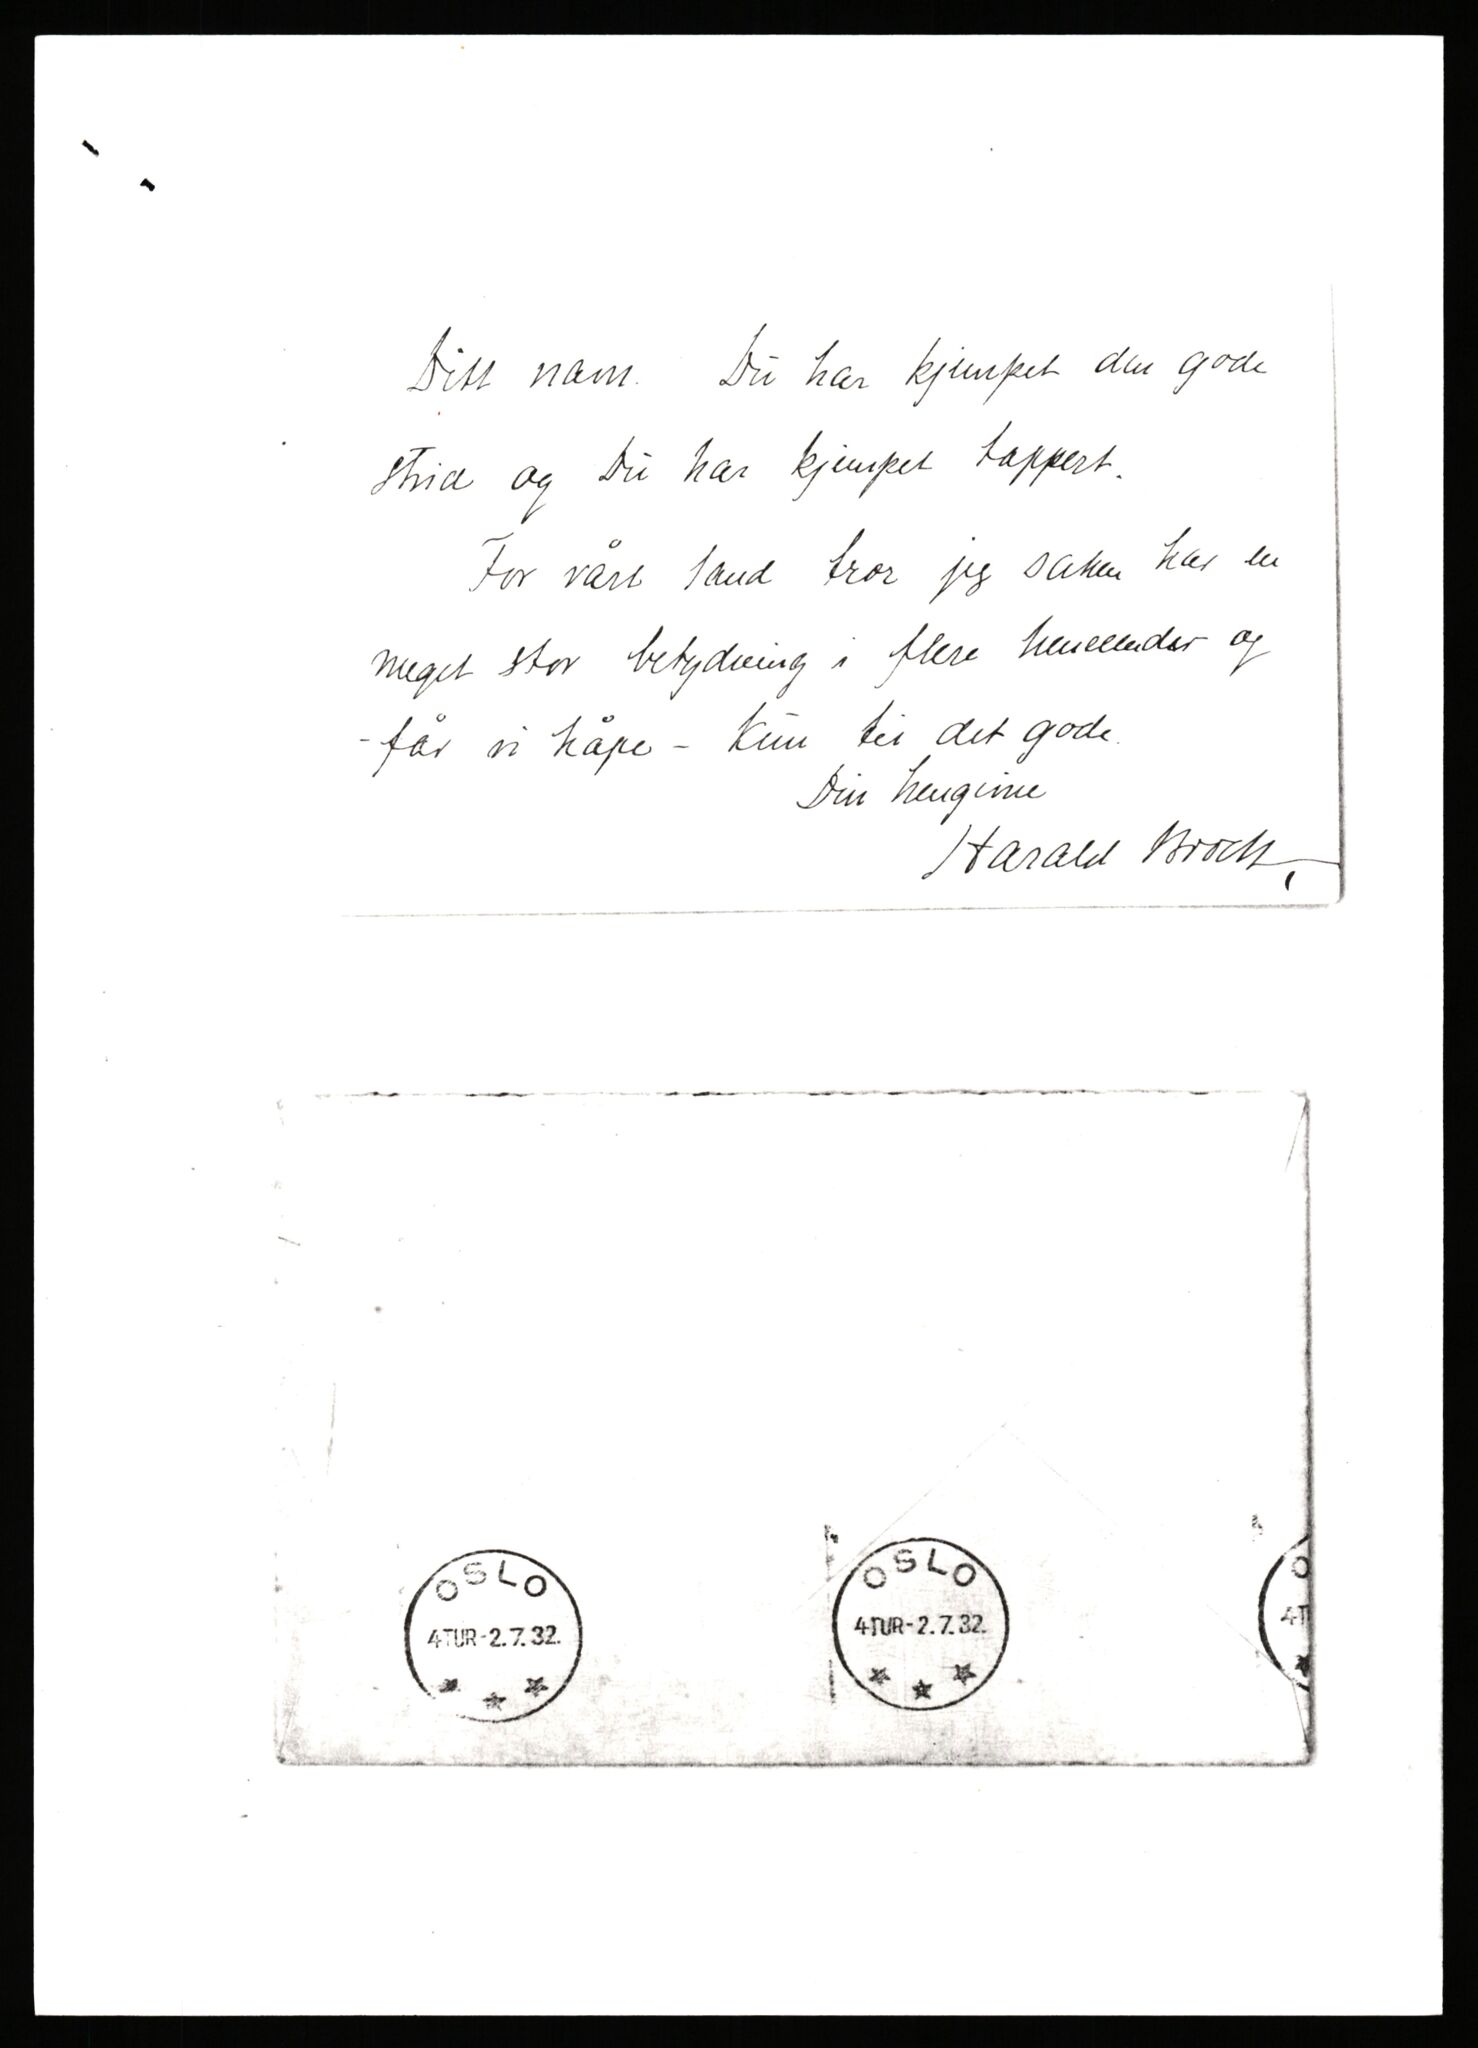 Ditt navn. Du har kjempet den gode
strid og Du har kjempet tappert.
For vårt land tror jeg saken har en
meget stor betydning i flere henseender og
- får vi håpe - kun til det gode.
Din hengivne
Harald Brock
OSLO
4TUR-2.7.32.
OSLO
4TUR-2.7.32.
O
4T